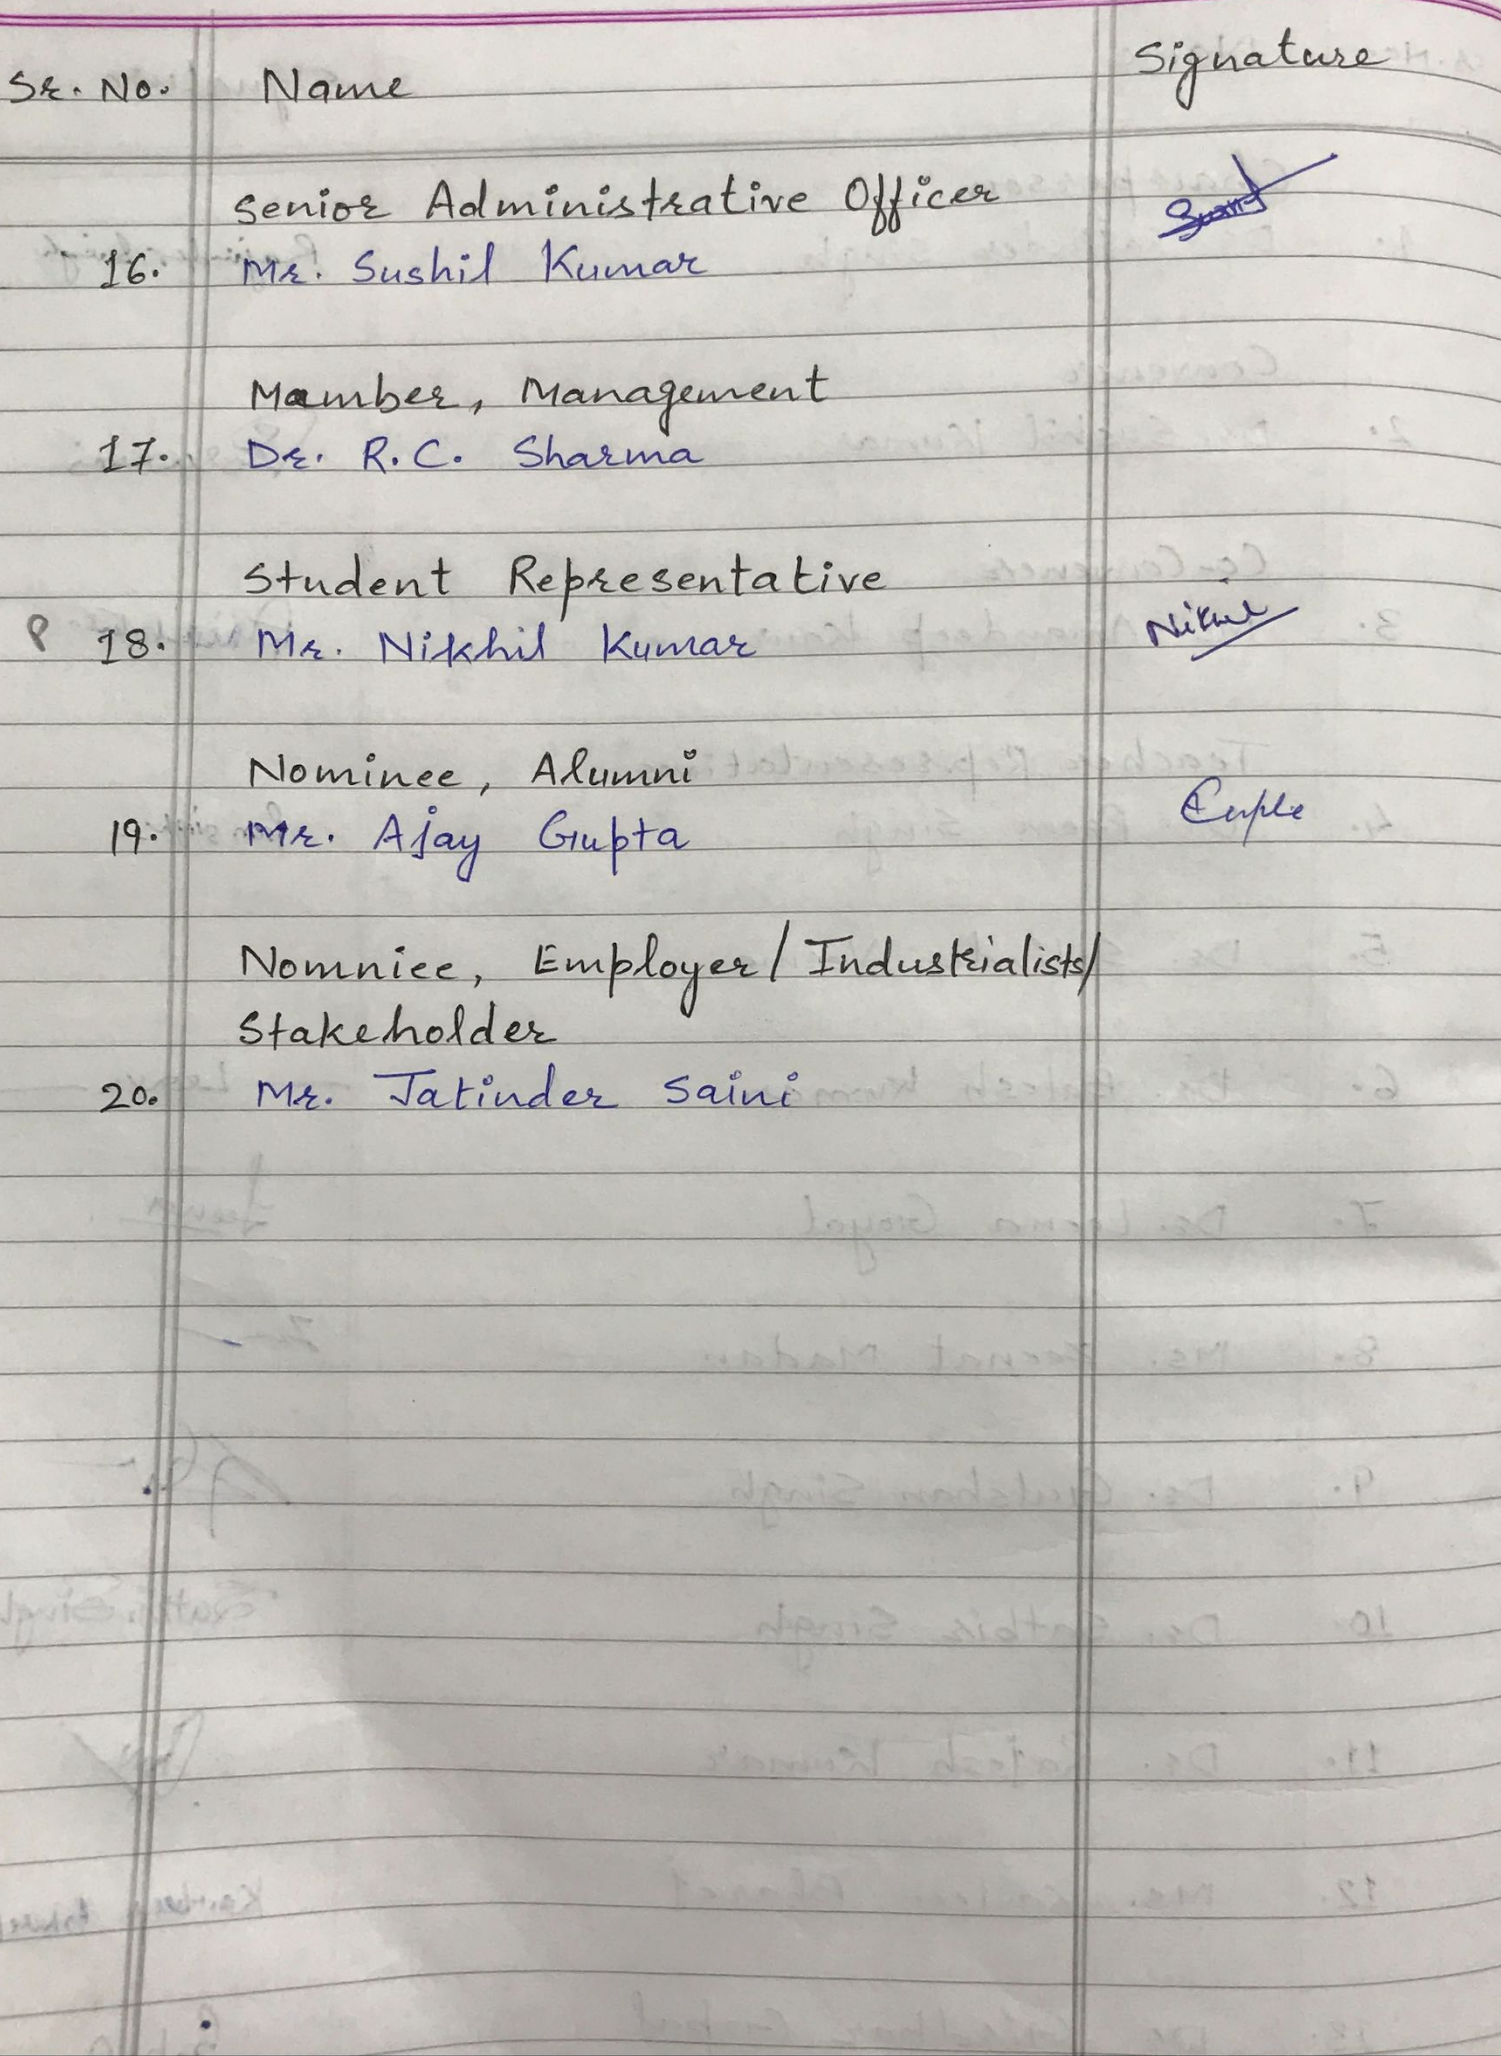 Sr. No. Name Signature
Senior Administrative Officer
16. Mr. Sushil Kumar
Mamber, Management
17. Dr. R.C. Sharma
Student Representative
P 18. Mr. Nikhil Kumar
Nominee, Alumni
19. Mr. Ajay Gupta
Nomniee, Employer/Industrialists/
Stakeholder
20. Mr. Jatinder Saini